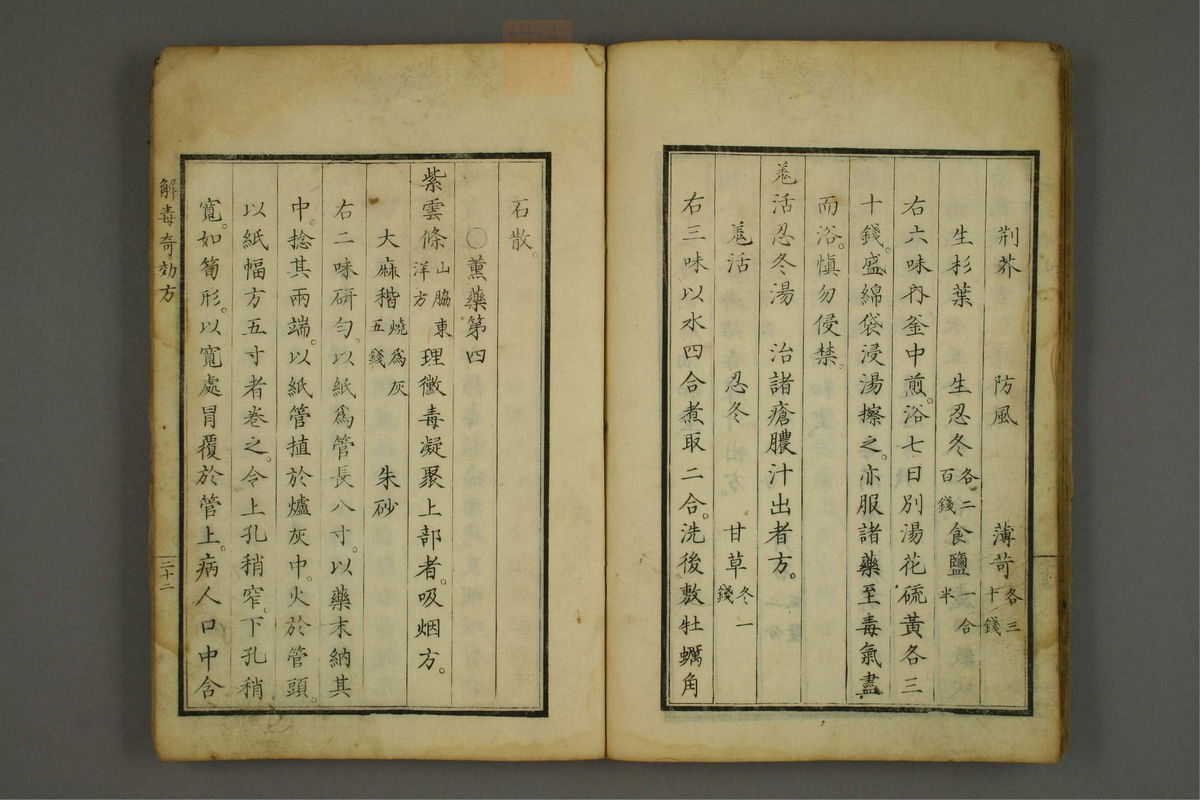 荆芥　防風　薄苛各三十錢
生杉葉　生忍冬各二百錢食鹽一合半
右六味內釜中煎。浴七日別湯花硫黃各三
十錢。盛綿袋浸湯擦之。亦服諸藥至毒氣盡
而浴。愼勿侵禁。
羗活忍冬湯　治諸瘡膿汁出者方。
羗活　忍冬　甘草各一錢
右三味以水四合煮取二合。洗後敷牡蠣角
石散。
〇薰藥第四
紫雲條山脇東洋方理黴毒凝聚上部者。吸烟方。
大麻稭燒爲灰五錢　朱砂
右二味研勻、以紙爲管長八寸。以藥末納其
中。捻其兩端。以紙管植於爐灰中。火於管頭。
以紙幅方五寸者卷之。令上孔稍窄。下孔稍
寬。如筍形。以寬處冐覆於管上。病人口中含
解毒奇効方
三十二